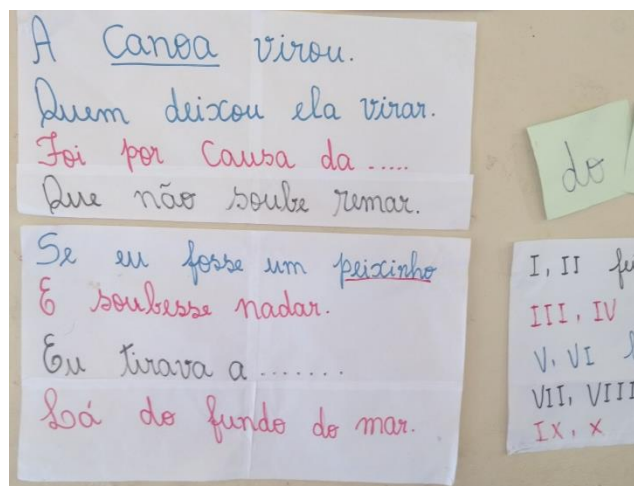 A Canoa virou.
Quem deixou ela virar.
Foi por Causa da .....
Que não soube remar.
Se eu fosse um peixinho
E soubesse nadar.
Eu tirava a .......
Lá do fundo do mar.
do
I, II
III, IV
V, VI
VII, VIII
IX, X